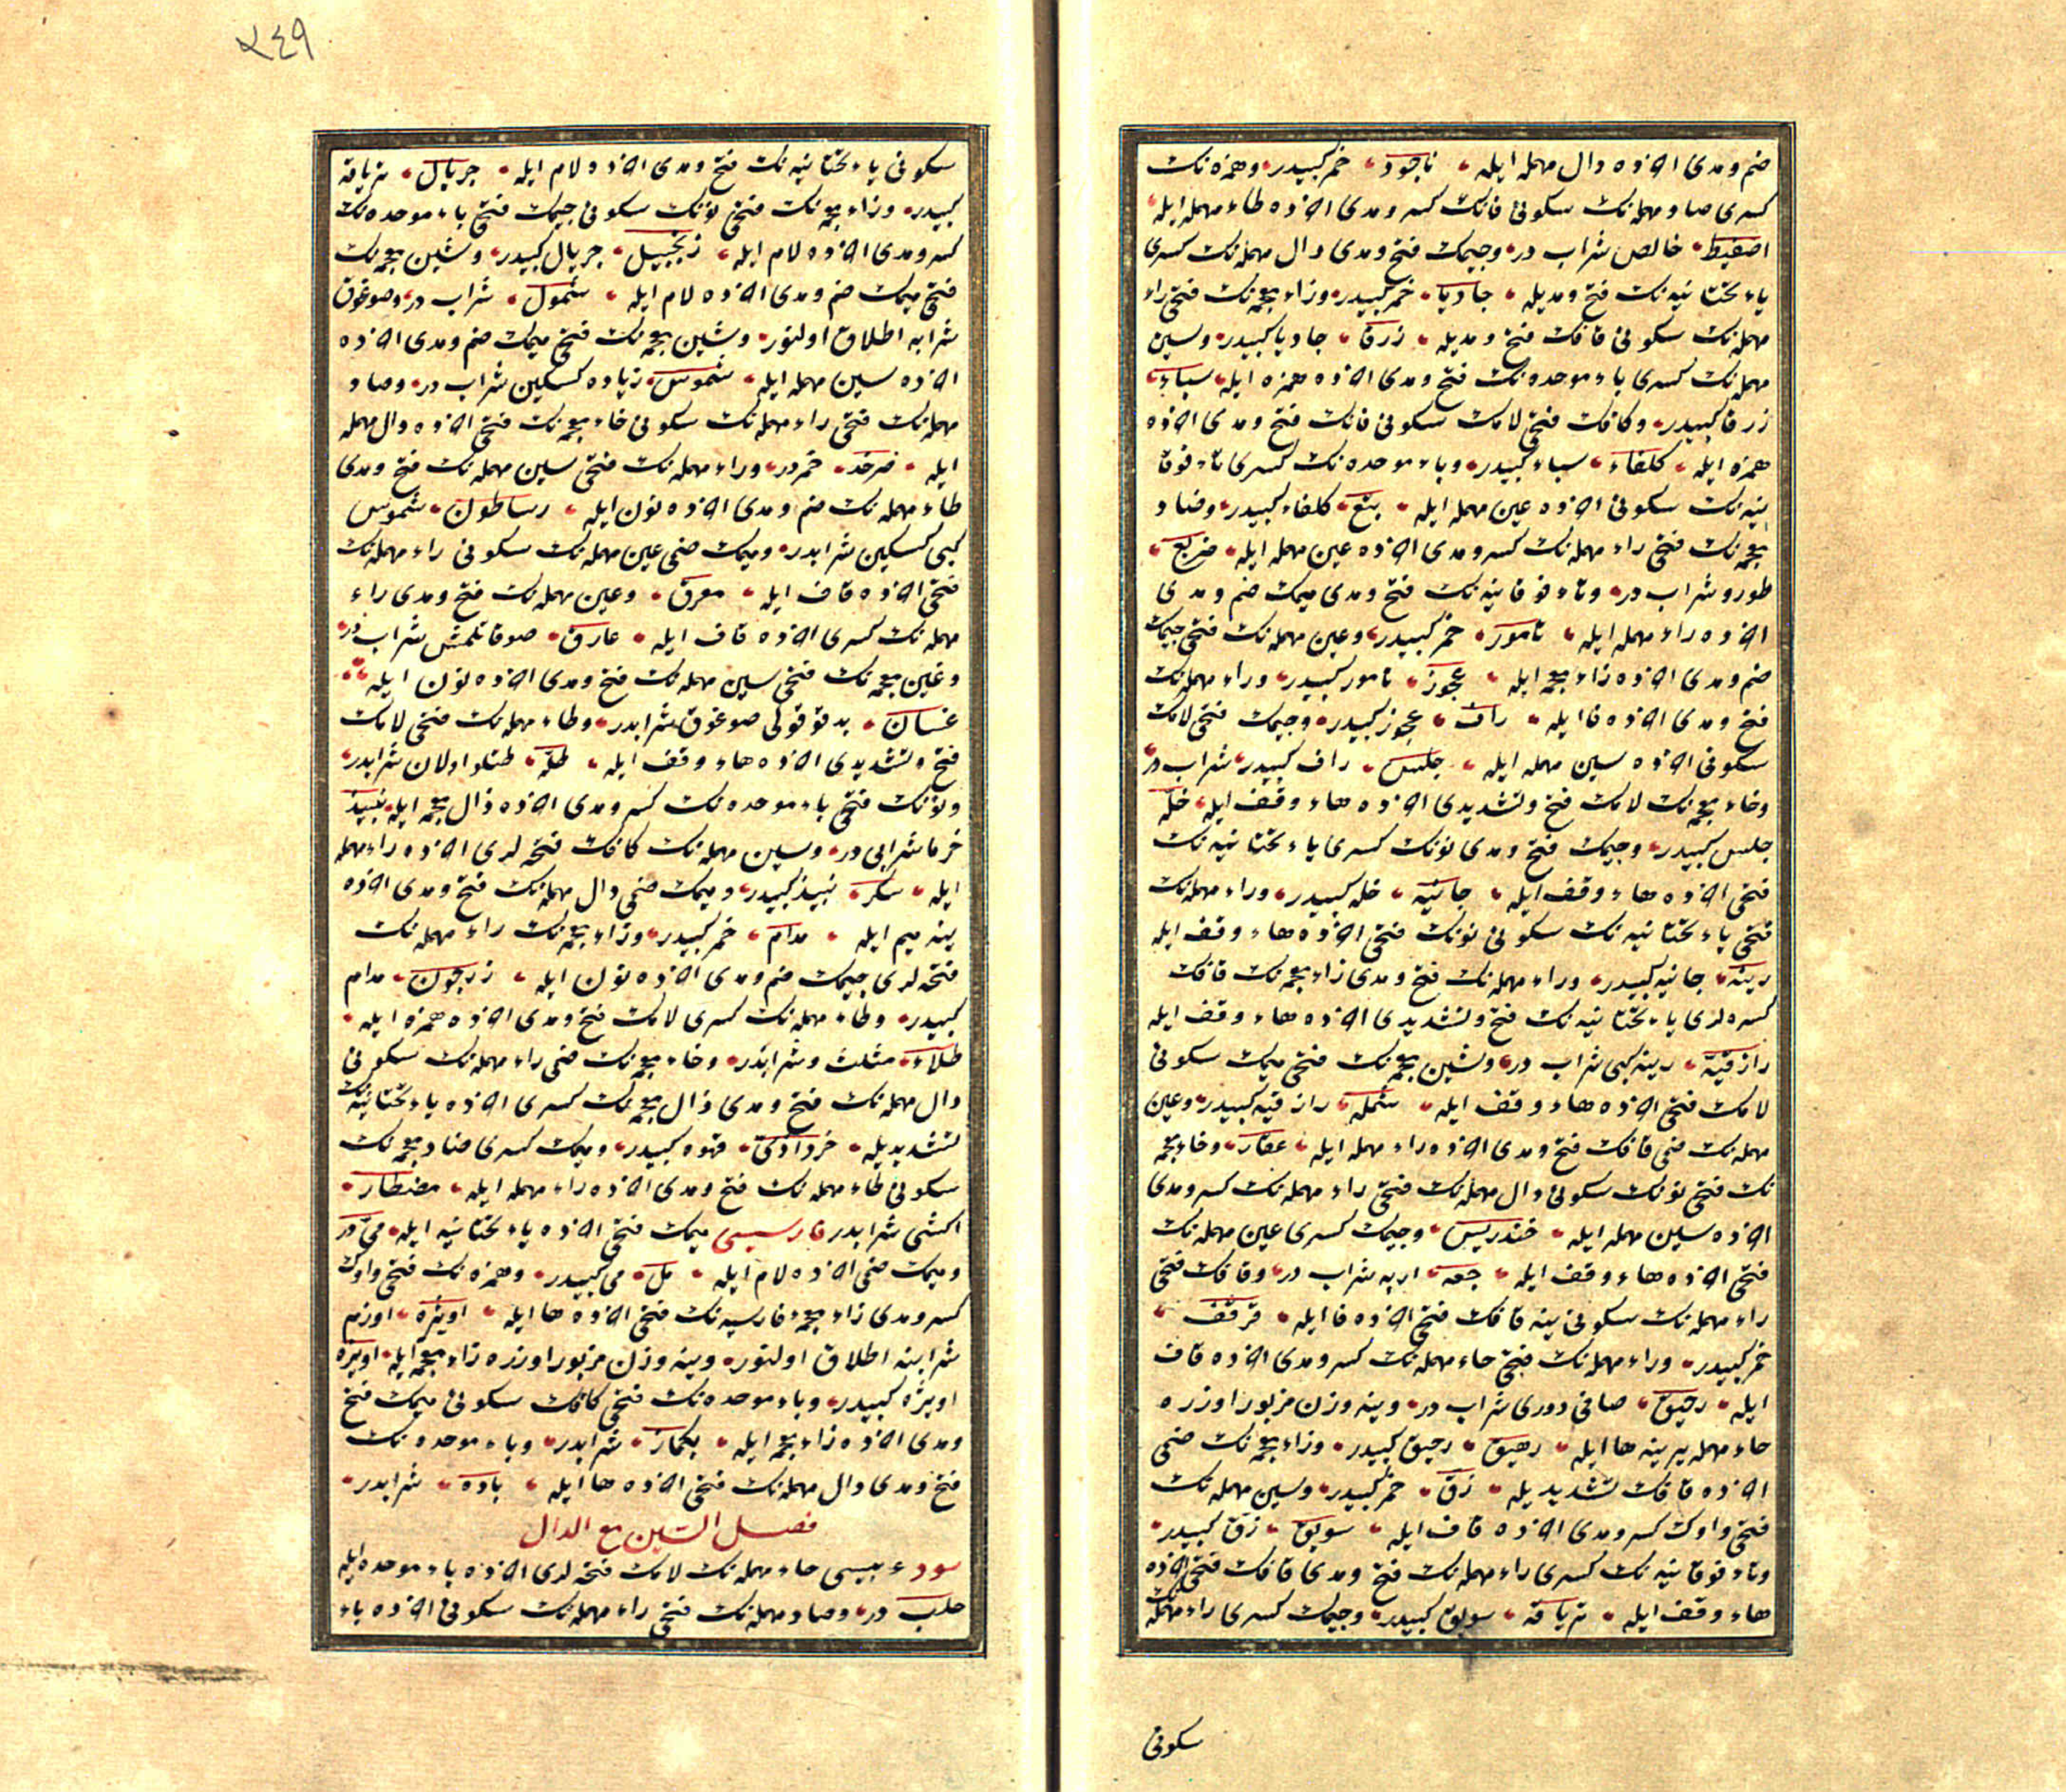 ضم ومدى اخرده دال مهمله ايله ، ناجود ، خمر كبيدر ، وهمزه نك
كسرى صاد مهمله نك سكونى فانك كسر ومدى اخرده طاء مهمله ايله ،
اصفيط ، خالص شراب در ، وجيمك فتح ومدى دال مهمله نك كسرى
ياء تحتانيه نك فتح ومديله ، جاديا ، خمر كبيدر ، وزاء معجمه نك فتحى راء
مهمله نك سكونى قافك فتح ومديله ، زرقا ، جاديا كبيدر ، وسين
مهمله نك كسرى باء موحده نك فتح ومدى اخرده همزه ايله ، سباء ،
زرقا كبيدر ، وكافك فتحى لامك سكونى فانك فتح ومدى اخرده
همزه ايله ، كلفاء ، سباء كبيدر ، وباء موحده نك كسرى تاء فوقا
نيه نك سكونى اخرده عين مهمله ايله ، بتع ، كلفاء كبيدر ، وضاد
معجمه نك فتحى راء مهمله نك كسر ومدى اخرده عين مهمله ايله ، ضريع ،
طورو شراب در ، وتاء فوقانيه نك فتح ومدى ميمك ضم ومدى
اخرده راء مهمله ايله ، تامور ، خمر كبيدر ، وعين مهمله نك فتحى جيمك
ضم ومدى اخرده زاء معجمه ايله ، عجوز ، تامور كبيدر ، وراء مهمله نك
فتح ومدى اخرده فا ايله ، راف ، عجوز كبيدر ، وجيمك فتحى لامك
سكونى اخرده سين مهمله ايله ، جلس ، راف كبيدر ، شراب در ،
وخاء معجمه نك لامك فتح وتشديدى اخرده هاء وقف ايله ، خلّه
جلس كبيدر ، وجيمك فتح ومدى نونك كسرى ياء تحتانيه نك
فتحى اخرده هاء وقف ايله ، جانيه ، خله كبيدر ، وراء مهمله نك
فتحى ياء تحتانيه نك سكونى نونك فتحى اخرده هاء وقف ايله
رينه ، جانيه كبيدر ، وراء مهمله نك فتح ومدى زاء معجمه نك قافك
كسره لرى ياء تحتانيه نك فتح وتشديدى اخرده هاء وقف ايله
رازقيّة ، رينه كبى شراب در ، وشين معجمه نك فتحى ميمك سكونى
لامك فتحى اخرده هاء وقف ايله ، شمله ، رازقيه كبيدر ، وعين
مهمله نك ضمى قافك فتح ومدى اخرده راء مهمله ايله ، عقار ، وخاء معجمه
نك فتحى نونك سكونى دال مهمله نك فتحى راء مهمله نك كسر ومدى
اخرده سين مهمله ايله ، خندريس ، وجيمك كسرى عين مهمله نك
فتحى اخرده هاء وقف ايله ، جعه ، ارپه شراب در ، وقافك فتحى
راء مهمله نك سكونى ينه قافك فتحى اخرده فا ايله ، قرقف ،
خمر كبيدر ، وراء مهمله نك فتحى حاء مهمله نك كسر ومدى اخرده قاف
ايله ، رحيق ، صافى دورى شراب در ، وينه وزن مزبور اوزره
حاء مهمله يرينه ها ايله ، رهيق ، رحيق كبيدر ، وزاء معجمه نك ضمى
اخرده قافك تشديديله ، زقّ ، خمر كبيدر ، وسين مهمله نك
فتحى واوك كسر ومدى اخرده قاف ايله ، سويق ، زق كبيدر ،
وتاء فوقانيه نك كسرى راء مهمله نك فتح ومدى قافك فتحى اخرده
هاء وقف ايله ، ترياقه ، سويق كبيدر ، وجيمك كسرى راء مهمله نك
سكونى
٢٤٩
سكونى ياء تحتانيه نك فتح ومدى اخرده لام ايله ، جريال ، ترياقه
كبيدر ، وزاء معجمه نك فتحى نونك سكونى جيمك فتحى باء موحده نك
كسر ومدى اخرده لام ايله ، زنجبيل ، جريال كبيدر ، وشين معجمه نك
فتحى ميمك ضم ومدى اخرده لام ايله ، شمول ، شراب در ، وصوغوق
شرابه اطلاق اولنور ، وشين معجمه نك فتحى ميمك ضم ومدى اخرده
اخرده سين مهمله ايله ، شموس ، زياده كسكين شراب در ، وصاد
مهمله نك فتحى راء مهمله نك سكونى خاء معجمه نك فتحى اخرده دال مهمله
ايله ، صرخد ، خمر در ، وراء مهمله نك فتحى سين مهمله نك فتح ومدى
طاء مهمله نك ضم ومدى اخرده نون ايله ، رساطون ، شموس
كبى كسكين شرابدر ، وميمك ضمى عين مهمله نك سكونى راء مهمله نك
فتحى اخرده قاف ايله ، معرق ، وعين مهمله نك فتح ومدى راء
مهمله نك كسرى اخرده قاف ايله ، عارق ، صوقاتلمش شراب در ،
وغين معجمه نك فتحى سين مهمله نك فتح ومدى اخرده نون ايله ،
غسان ، بد قوقولى صوغوق شرابدر ، وطاء مهمله نك فتحى لامك
فتح وتشديدى اخرده هاء وقف ايله ، طلّه ، طتلو اولان شرابدر ،
ونونك فتحى باء موحده نك كسر ومدى اخرده ذال معجمه ايله ، نبيذ
خرما شرابى در ، وسين مهمله نك كافك فتحه لرى اخرده راء مهمله
ايله ، سكر ، نبيذ كبيدر ، وميمك ضمى دال مهمله نك فتح ومدى اخرده
ينه ميم ايله ، مدام ، خمر كبيدر ، وزاء معجمه نك راء مهمله نك
فتحه لرى جيمك ضم ومدى اخرده نون ايله ، زرجون ، مدام
كبيدر ، وطاء مهمله نك كسرى لامك فتح ومدى اخرده همزه ايله ،
طلاء ، مثلث وشرابدر ، وخاء معجمه نك ضمى راء مهمله نك سكونى
دال مهمله نك فتح ومدى ذال معجمه نك كسرى اخرده ياء تحتانيه نك
تشديديله ، خرداذى ، قهوه كبيدر ، وميمك كسرى ضاد معجمه نك
سكونى طاء مهمله نك فتح ومدى اخرده راء مهمله ايله ، مضطار ،
اكشى شرابدر فارسيسى ميمك فتحى اخرده ياء تحتانيه ايله ، مى در
وميمك ضمى اخرده لام ايله ، مل ، مى كبيدر ، وهمزه نك فتحى واوك
كسر ومدى زاء معجمه فارسيه نك فتحى اخرده ها ايله ، اويژه ، اوزم
شرابنه اطلاق اولنور ، وينه وزن مزبور اوزره زاء معجمه ايله ، اويزه
اويژه كبيدر ، وباء موحده نك فتحى كافك سكونى ميمك فتح
ومدى اخرده زاء معجمه ايله ، بكماز ، شرابدر ، وباء موحده نك
فتح ومدى دال مهمله نك فتحى اخرده ها ايله ، باده ، شرابدر ،
فصل السّين مع الدال
سود عربيسى حاء مهمله نك لامك فتحه لرى اخرده باء موحده ايله
حلب در ، وصاد مهمله نك فتحى راء مهمله نك سكونى اخرده باء